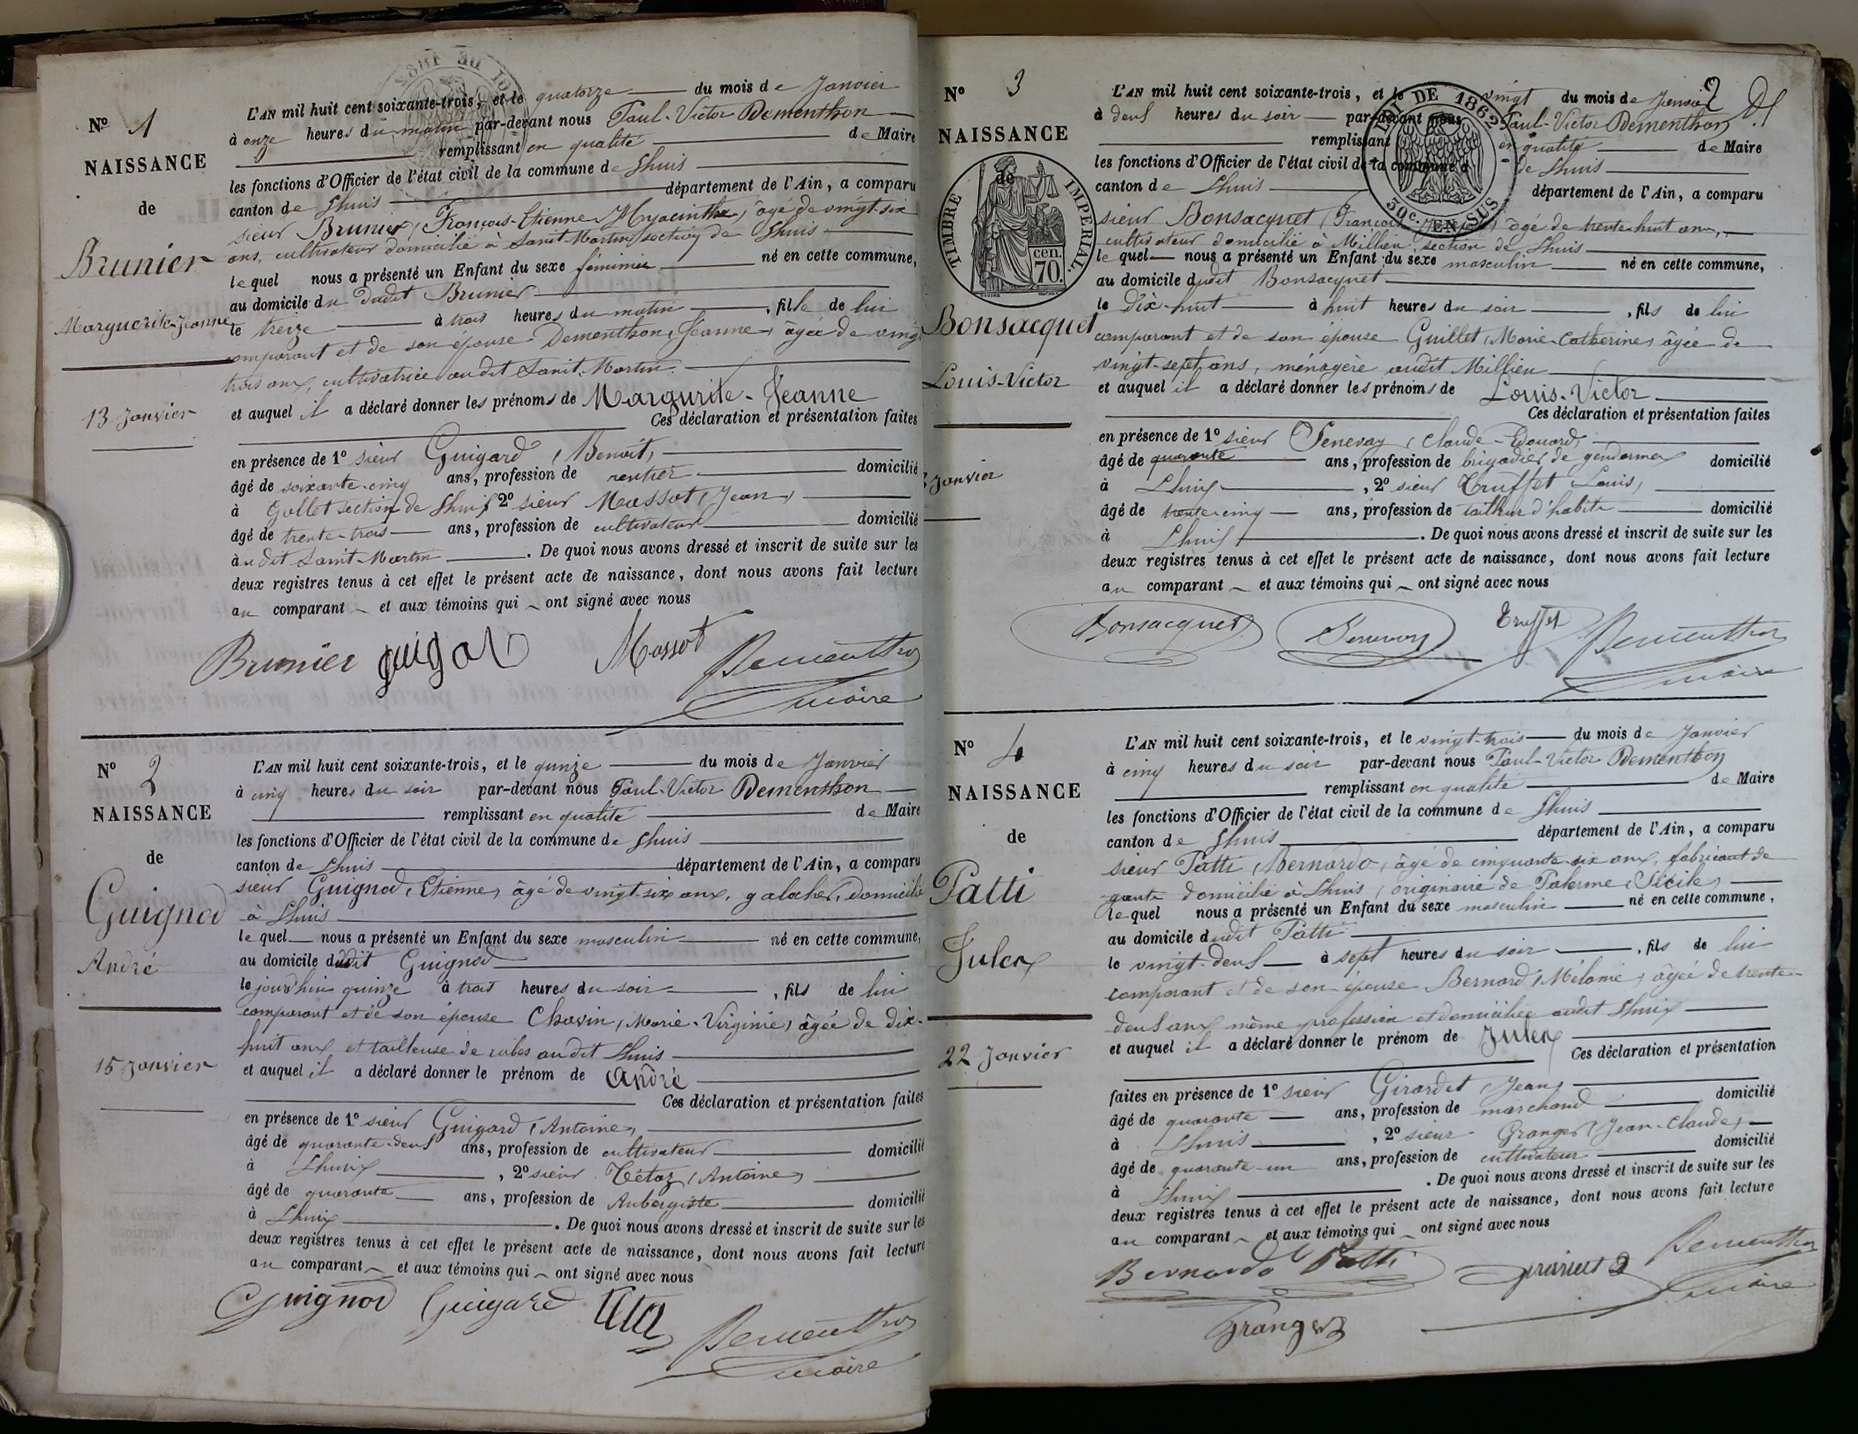 Nº 1
NAISSANCE
de
Brunier
Marguerite-Jeanne
13 Janvier
L'AN mil huit cent soixante-trois, et le quatorze du mois de Janvier
à onze heures du matin par-devant nous Paul-Victor Dementhon
remplissant en qualité de Maire
les fonctions d'Officier de l'état civil de la commune de Lhuis
canton de Lhuis département de l'Ain, a comparu
sieur Brunier, François-Etienne-Hyacinthe, âgé de vingt-six
ans, cultivateur domicilié à Saint Martin section de Lhuis
lequel nous a présenté un Enfant du sexe féminin né en cette commune,
au domicile du dudit Brunier
le treize à trois heures du matin, fille de lui
comparant et de son épouse Dementhon, Jeanne, âgée de vingt
trois ans, cultivatrice audit Saint Martin.
et auquel il a déclaré donner les prénoms de Margurite-Jeanne
Ces déclaration et présentation faites
en présence de 1º sieur Guigard, Benoit,
âgé de soixante-cinq ans, profession de rentier domicilié
à Gollet section de Lhuis 2º sieur Massot, Jean,
âgé de trente-trois ans, profession de cultivateur domicilié
audit Saint Martin. De quoi nous avons dressé et inscrit de suite sur les
deux registres tenus à cet effet le présent acte de naissance, dont nous avons fait lecture
au comparant et aux témoins qui ont signé avec nous
Brunier Guigard Massot Dementhon
maire
Nº 2
NAISSANCE
de
Guignod
André
15 Janvier
L'AN mil huit cent soixante-trois, et le quinze du mois de Janvier
à cinq heures du soir par-devant nous Paul-Victor Dementhon
remplissant en qualité de Maire
les fonctions d'Officier de l'état civil de la commune de Lhuis
canton de Lhuis département de l'Ain, a comparu
sieur Guignod, Etienne, âgé de vingt-six ans, galocher, domicilié
à Lhuis
lequel nous a présenté un Enfant du sexe masculin né en cette commune,
au domicile dudit Guignod
le jourd'hui quinze à trois heures du soir, fils de lui
comparant et de son épouse Chavin, Marie-Virginie, âgée de dix-
huit ans et tailleuse de robes audit Lhuis
et auquel il a déclaré donner le prénom de André
Ces déclaration et présentation faites
en présence de 1º sieur Guigard, Antoine,
âgé de quarante-deux ans, profession de cultivateur domicilié
à Lhuis, 2º sieur Tétaz, Antoine,
âgé de quarante ans, profession de Aubergiste domicilié
à Lhuis. De quoi nous avons dressé et inscrit de suite sur les
deux registres tenus à cet effet le présent acte de naissance, dont nous avons fait lecture
au comparant et aux témoins qui ont signé avec nous
Guignod Guigard Dementhon
maire
2
Nº 3
NAISSANCE
de
TIMBRE IMPERIAL
70 cen.
LOI DE 1862
50c. EN SUS
Bonsacquet
Louis-Victor
Janvier
L'AN mil huit cent soixante-trois, et le vingt du mois de Janvier
à deux heures du soir par-devant nous Paul-Victor Dementhon
remplissant en qualité de Maire
les fonctions d'Officier de l'état civil de la commune de Lhuis
canton de Lhuis département de l'Ain, a comparu
sieur Bonsacquet, François âgé de trente-huit ans,
cultivateur domicilié à Millieu section de Lhuis
lequel nous a présenté un Enfant du sexe masculin né en cette commune,
au domicile dudit Bonsacquet
le dix-huit à huit heures du soir, fils de lui
comparant et de son épouse Guillet, Marie-Catherine, âgée de
vingt-sept ans, ménagère audit Millieu
et auquel il a déclaré donner les prénoms de Louis-Victor
Ces déclaration et présentation faites
en présence de 1º sieur Senevay, Claude-Edouard,
âgé de quarante ans, profession de brigadier de gendarmes domicilié
à Lhuis, 2º sieur Truffet Louis,
âgé de trente-cinq ans, profession de tailleur d'habits domicilié
à Lhuis. De quoi nous avons dressé et inscrit de suite sur les
deux registres tenus à cet effet le présent acte de naissance, dont nous avons fait lecture
au comparant et aux témoins qui ont signé avec nous
Bonsacquet Senevay Truffet Dementhon
maire
Nº 4
NAISSANCE
de
Patti
Jules
22 Janvier
L'AN mil huit cent soixante-trois, et le vingt-trois du mois de Janvier
à cinq heures du soir par-devant nous Paul-Victor Dementhon
remplissant en qualité de Maire
les fonctions d'Officier de l'état civil de la commune de Lhuis
canton de Lhuis département de l'Ain, a comparu
sieur Patti, Bernardo, âgé de cinquante-six ans, fabricant de
gants domicilié à Lhuis, originaire de Palerme, Sicile,
lequel nous a présenté un Enfant du sexe masculin né en cette commune,
au domicile dudit Patti
le vingt-deux à sept heures du soir, fils de lui
comparant et de son épouse Bernard, Mélanie, âgée de trente-
deux ans même profession et domiciliée audit Lhuis
et auquel il a déclaré donner le prénom de Jules
Ces déclaration et présentation
faites en présence de 1º sieur Girardet, Jean,
âgé de quarante ans, profession de marchand domicilié
à Lhuis, 2º sieur Granger, Jean-Claude,
âgé de quarante-un ans, profession de cultivateur domicilié
à Lhuis. De quoi nous avons dressé et inscrit de suite sur les
deux registres tenus à cet effet le présent acte de naissance, dont nous avons fait lecture
au comparant et aux témoins qui ont signé avec nous
Bernardo Patti Dementhon
Granger maire